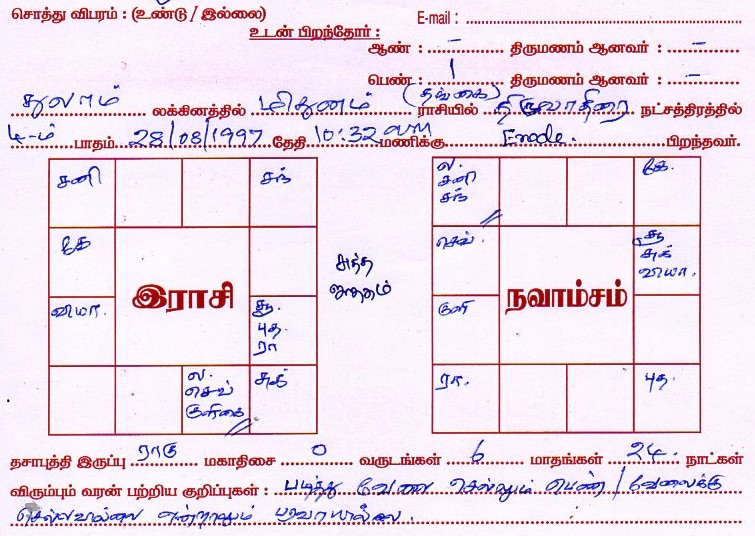 சொத்து விபரம் : (உண்டு / இல்லை) E-mail :
உடன் பிறந்தோர் :
ஆண் : – திருமணம் ஆனவர் : –
பெண் : 1 திருமணம் ஆனவர் : –
(தங்கை)
துலாம் லக்கினத்தில் மிதுனம் ராசியில் திருவாதிரை நட்சத்திரத்தில்
4-ம் பாதம் 28/08/1997 தேதி 10:32 AM மணிக்கு Erode. பிறந்தவர்.
சனி சந்
கே
வியா. சூ. புத ரா
ல. செவ் குளிகை சுக்
இராசி
சுத்த ஜாதகம்
ல. சனி சந் கே.
செவ். சூ சுக் வியா.
குளி
ரா. புத.
நவாம்சம்
தசாபுத்தி இருப்பு ராகு மகாதிசை 0 வருடங்கள் 6 மாதங்கள் 24. நாட்கள்
விரும்பும் வரன் பற்றிய குறிப்புகள் : படித்து வேலை செல்லும் பெண் / வேலைக்கு
செல்லவில்லை என்றாலும் பரவாயில்லை.